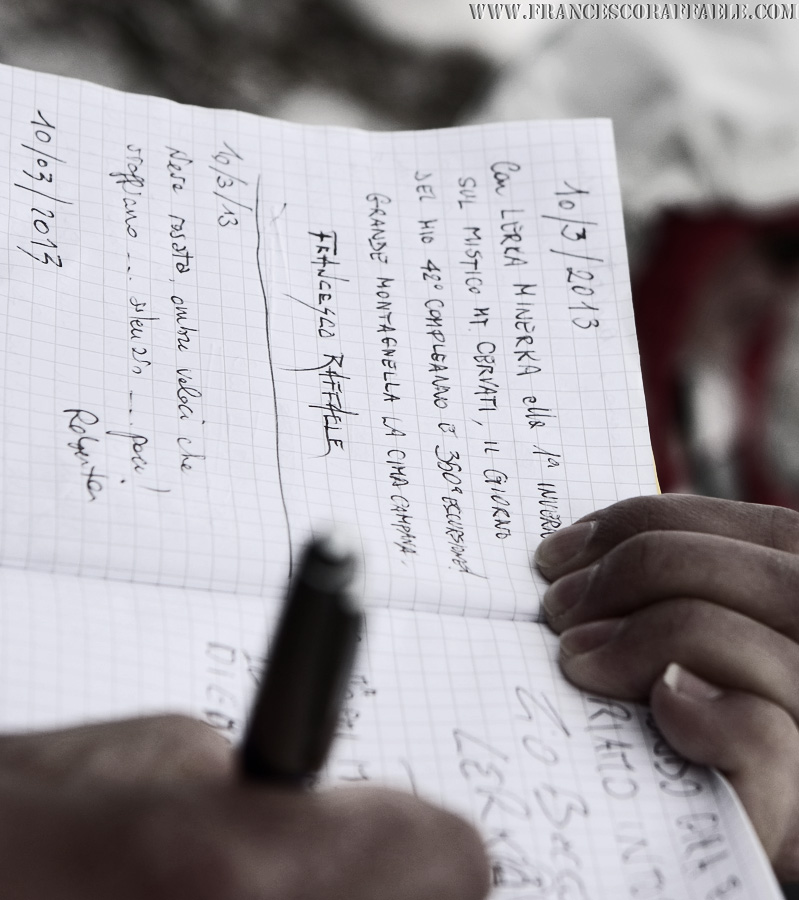 WWW.FRANCESCORAFFAELE.COM
10/3/2013
Con LERKA MINERKA alla 1ª INVERN
SUL MISTICO MT. CERVATI, IL GIORNO
DEL MIO 42º COMPLEANNO E 360ª ESCURSIONE!
GRANDE MONTAGNELLA LA CIMA CAMPANA.
FRANCESCO RAFFAELE
10/3/13
Neve rosata, ombre veloci che
... silenzio ... pace!
Roberta
10/03/2013
RIATO
LERKA